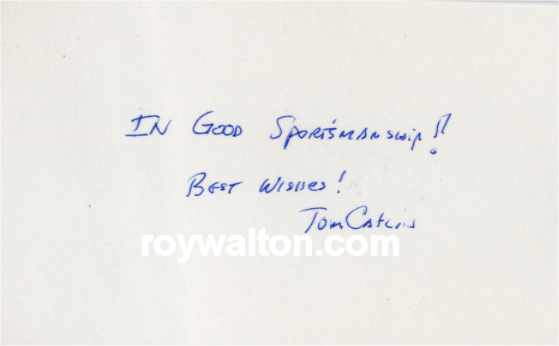 IN GOOD SPORTSMANSHIP!!
BEST WISHES!
TOM CATLIN
roywalton.com